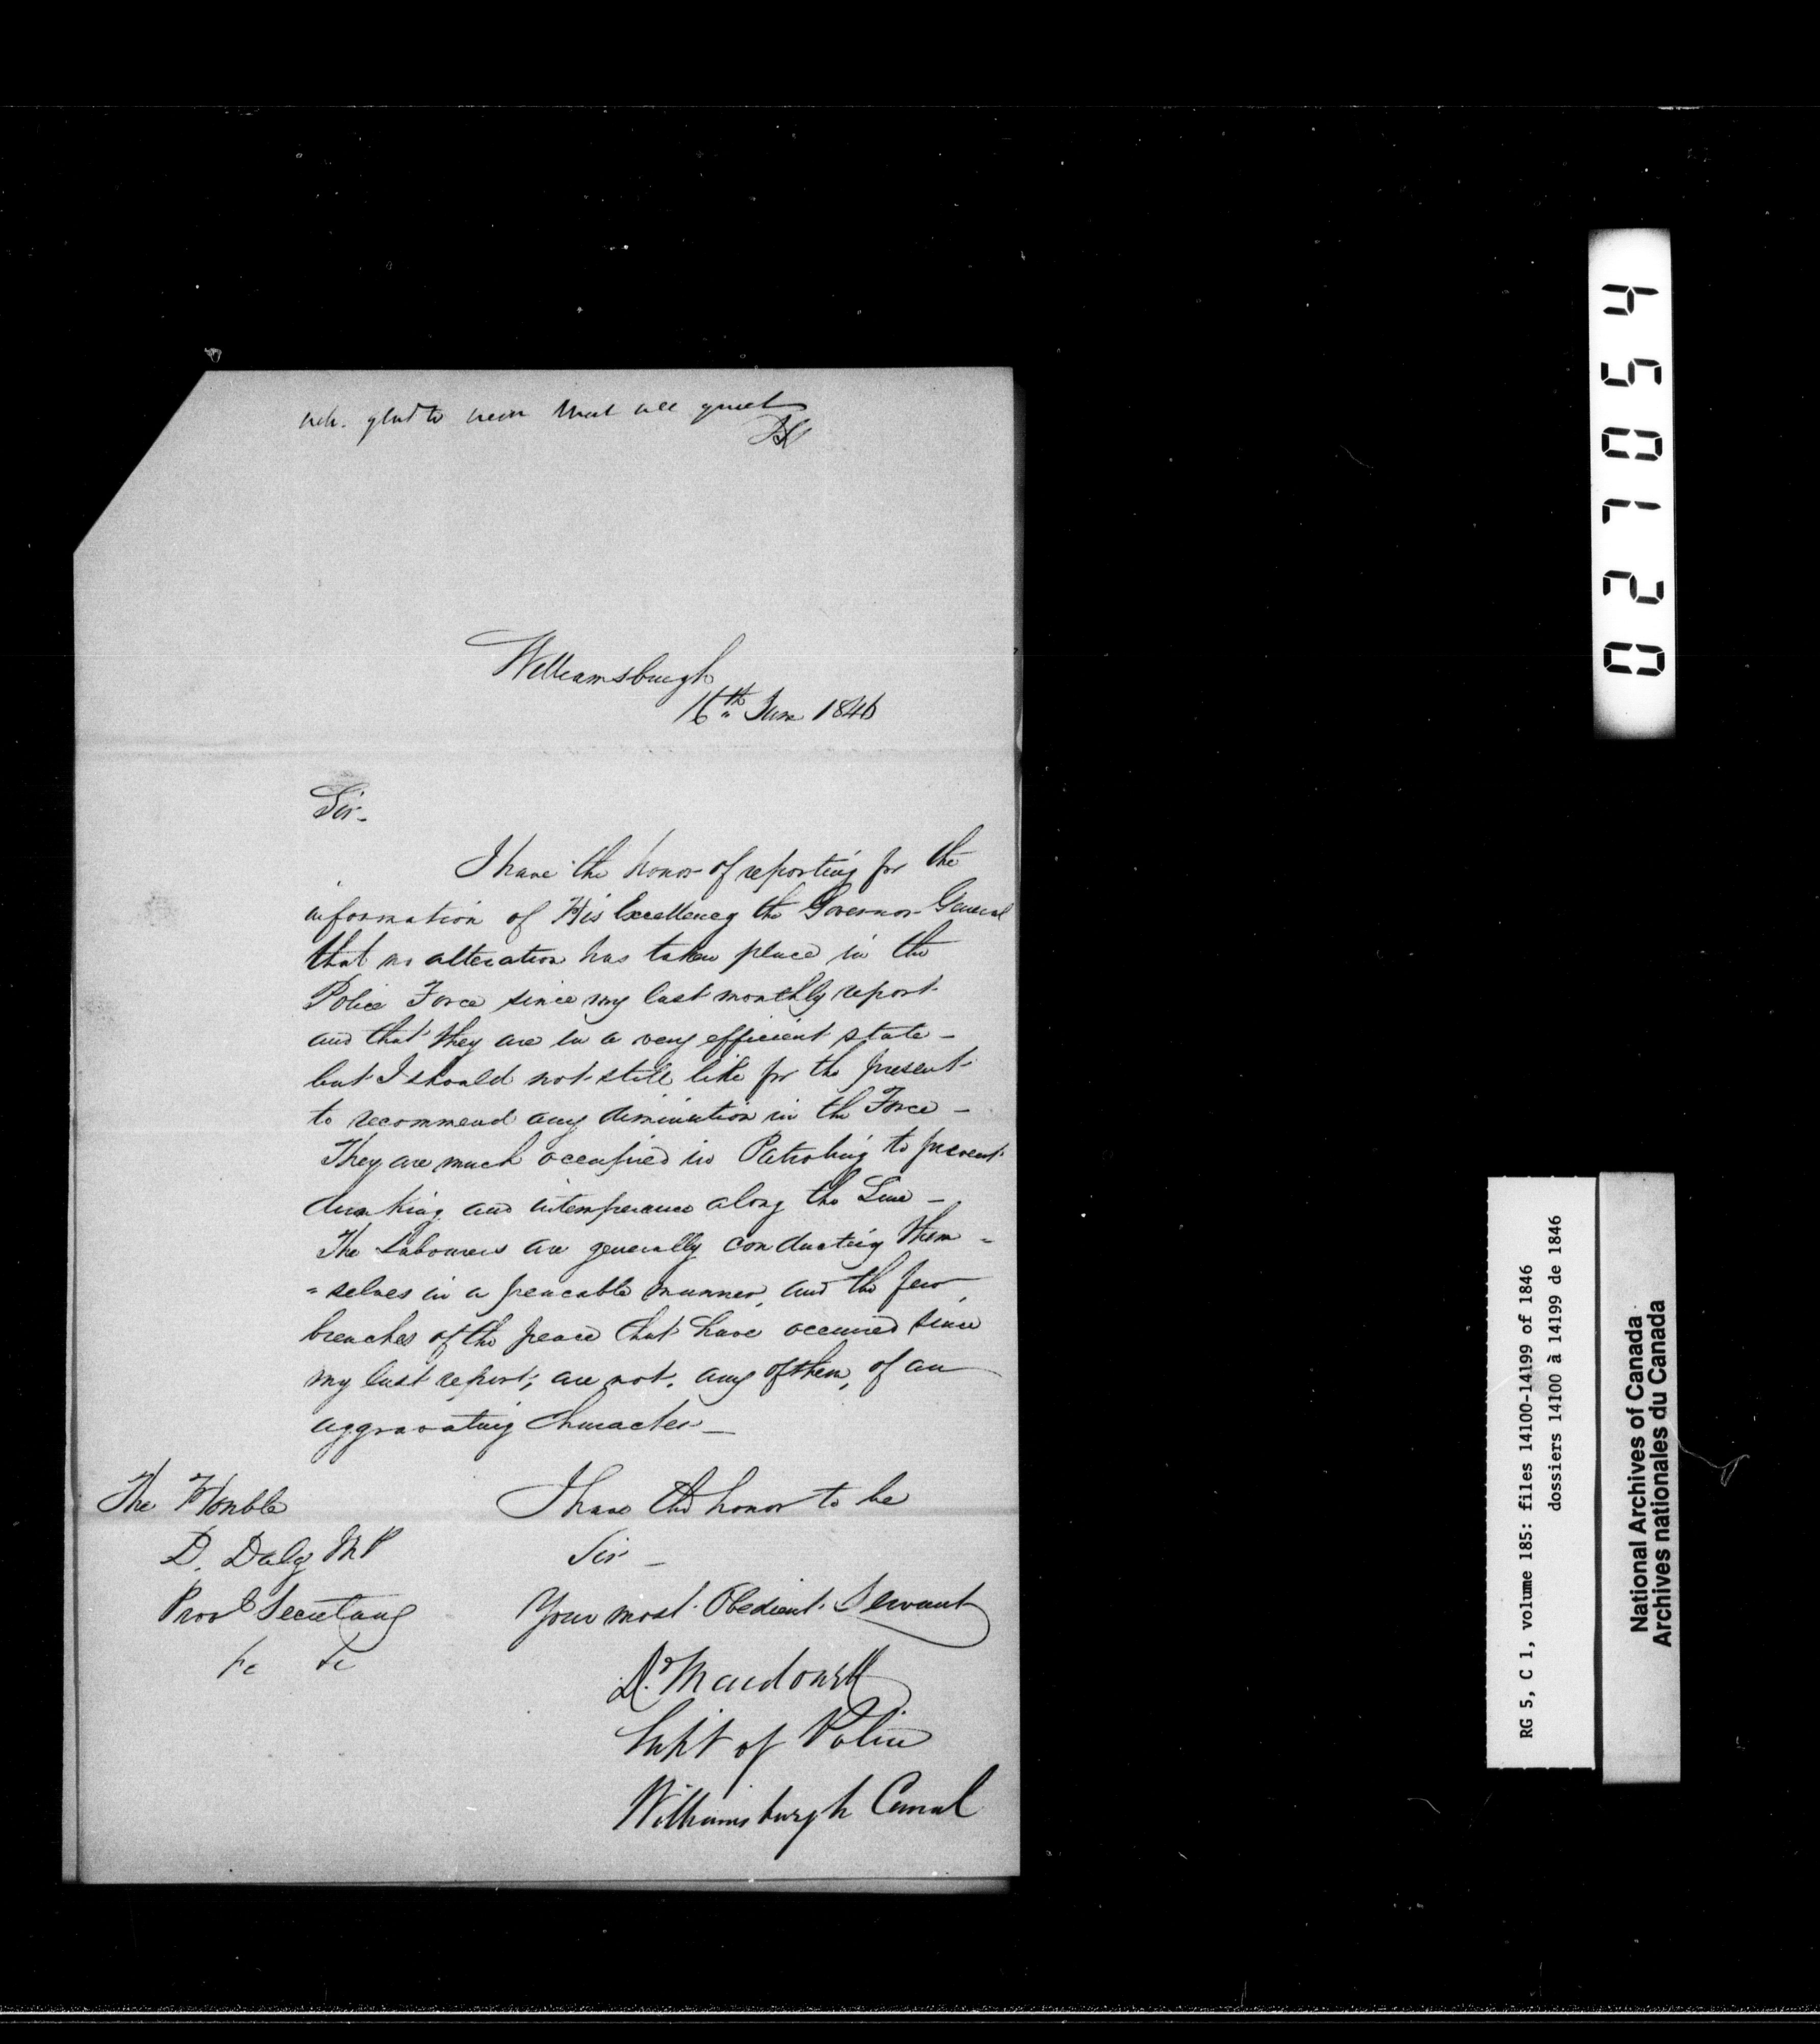 ack. glad to hear that all quiet
Williamsburgh
16th June 1846
Sir -
I have the honor of reporting for the
information of His Excellency the Governor General
that no alteration has taken place in the
Police Force since my last monthly report
and that they are in a very efficient state -
but I should not still like for the present
to recommend any diminution in the Force -
They are much occupied in Patroling to prevent
drinking and intemperance along the Line -
The Labourers are generally conducting them =
= selves in a peacable manner, and the few
breaches of the peace that have occurred since
my last report, are not, any of them, of an
aggravating Character -
I have the honor to be
Sir -
Your most Obedient Servant
D. Macdonell
Supt of Police
Williamsburgh Canal
The Honble
D. Daly MP
Provl Secretary
&c &c
027054
RG 5, C 1, volume 185: files 14100-14199 of 1846
dossiers 14100 à 14199 de 1846
National Archives of Canada
Archives nationales du Canada